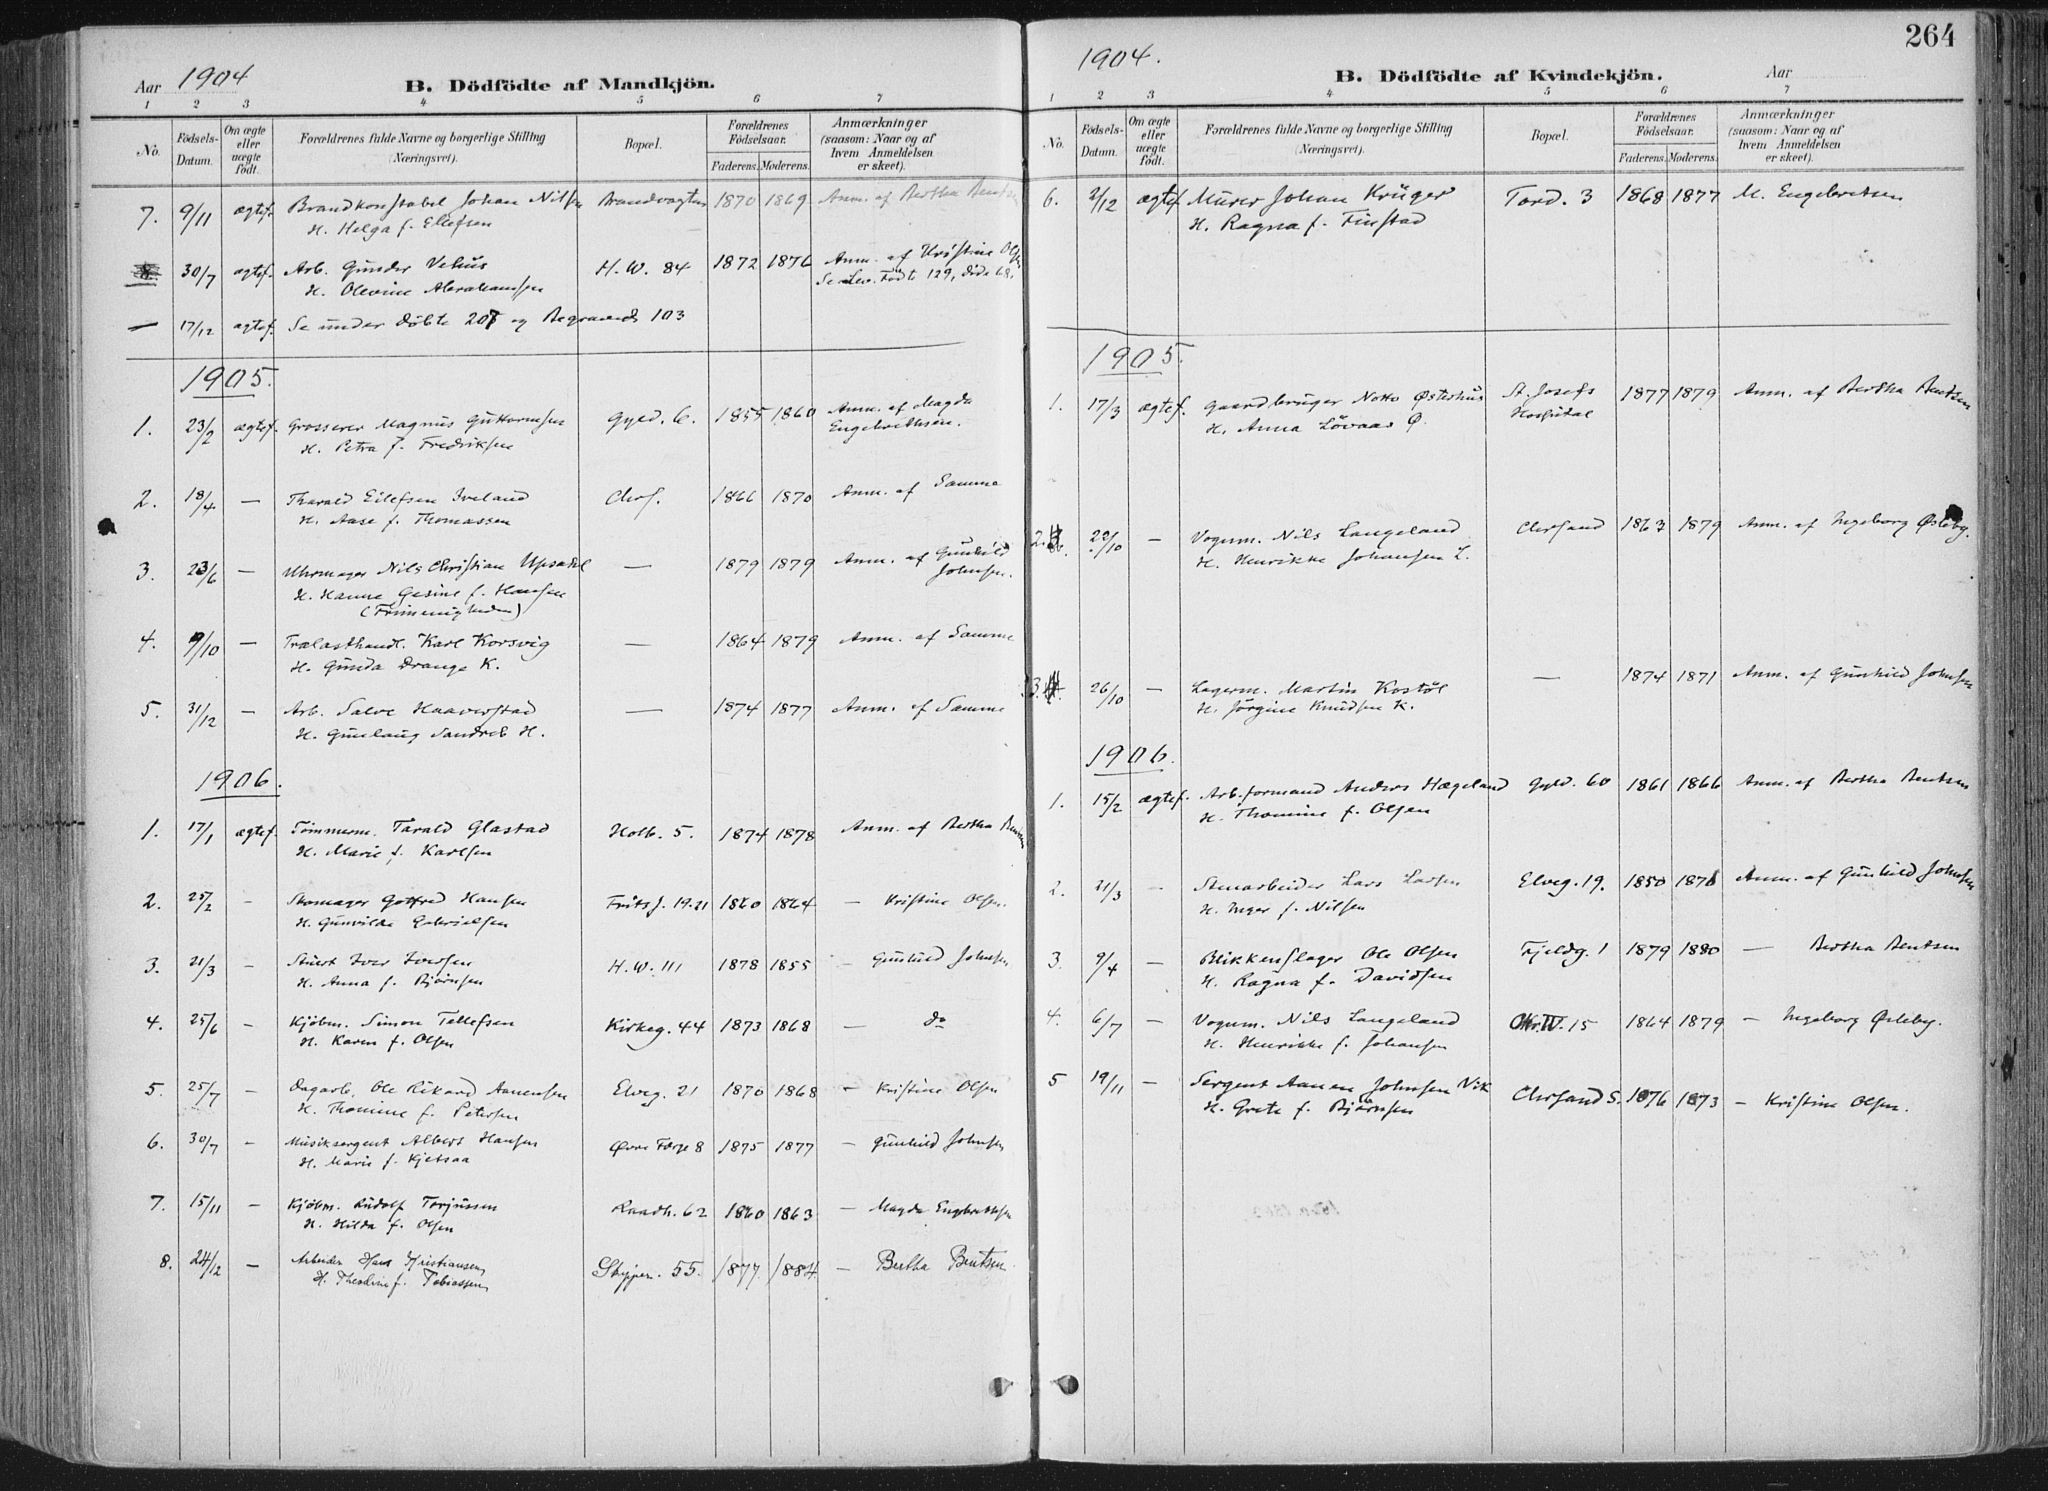 Aar 1904 B. Dödfödte af Mandkjön.
1 2 3 4 5 6 7
No. Födsels-Datum. Om ægte eller uægte födt. Forældrenes fulde Navne og borgerlige Stilling (Næringsvei). Bopæl. Forældrenes Födselsaar. Faderens. Moderens. Anmærkninger (saasom: Naar og af hvem Anmeldelsen er skeet).
7. 9/11 ægtef. Brandkonstabel Johan Nilsen Brandvagten 1870 1869 Anm. af Bertha Bentsen
H. Helga f. Ellefsen
8. 30/7 ægtef. Arb. Gunder Vehus H.W. 84 1872 1876 Anm. af Kristine Olsen
H. Olevine Abrahamsen Se Lev. Födte 129, döde 68.
— 17/12 ægtef. Se under döbte 207 og Begravede 103
1905.
1. 23/2 ægtef. Grosserer Magnus Guttormsen Gyld. 6. 1855 1860 Anm. af Magda
H. Petra f. Fredriksen Engebrethsen.
2. 18/4 — Tharald Eilefsen Iveland Chrs. 1866 1870 Anm. af Samme
H. Aase f. Thomassen
3. 23/6 — Uhrmager Nils Christian Upsadel — 1879 1879 Anm. af Gunhild
H. Hanne Gesine f. Hansen Johnsen.
(Frimenigheden)
4. 9/10 — Trælasthandl. Karl Korsvig — 1864 1879 Anm. af Samme
H. Gunda Drange K.
5. 31/12 — Arb. Salve Haaverstad — 1874 1877 Anm. af Samme
H. Gunlaug H.
1906.
1. 17/1 ægtef. Tömmerm. Tarald Glastad Holb. 5. 1874 1878 Anm. af Bertha Bentsen
H. Marie f. Karlsen
2. 25/2 - Skomager Gotfred Hansen Frits J. 19.21 1860 1864 — Kristine Olsen.
H. Gunvilda Gabrielsen
3. 21/3 - Stuert Iver Iversen H.W. 111 1878 1855 — Gunhild Johnsen
H. Anna f. Björnsen
4. 25/6 - Kjöbm. Simon Tellefsen Kirkeg. 44 1873 1868 — do
H. Karen f. Olsen
5. 25/7 — Dagarb. Ole Rikard Aanensen Elveg. 21 1870 1868 — Kristine Olsen
H. Thomine f. Petersen
6. 30/7 — Musiksergent Albert Hansen Øvre 8 1875 1877 — Gunhild Johnsen
H. Marie f. Kjetsaa
7. 15/11 — Kjöbm. Rudolf Torjussen Raadh. 62 1860 1863 — Magda Engebrethsen
H. Hilda f. Olsen
8. 24/12 — Arbeider Hans Kristiansen Skipper. 55. 1877 1884 — Bertha Bentsen
H. Theoline f. Tobiassen
264
1904. B. Dödfödte af Kvindekjön. Aar
1 2 3 4 5 6 7
No. Födsels-Datum. Om ægte eller uægte födt. Forældrenes fulde Navne og borgerlige Stilling (Næringsvei). Bopæl. Forældrenes Födselsaar. Faderens. Moderens. Anmærkninger (saasom: Naar og af hvem Anmeldelsen er skeet).
6. 2/12 ægtef. Murer Johan Krüger Tord. 3 1868 1877 M. Engebretsen
H. Ragna f. Finstad
1905.
1. 17/3 ægtef. Gaardbruger Notto Østerhus St. Josefs 1877 1879 Anm. af Bertha Bentsen
H. Anna Lövaas Ø. Hospital
2. /10 — Vognm. Nils Langeland Chrsand 1863 1879 Anm. af Ingeborg Øsleby.
H. Henrikke Johansen L.
3. 26/10 — Lagerm. Martin Kostöl — 1874 1871 Anm. af Gunhild Johnsen
H. Jörgine Knudsen K.
1906.
1. 15/2 ægtef. Arb.formand Anders Hægeland Gyld. 60 1861 1866 Anm. af Bertha Bentsen
H. Thomine f. Olsen
2. 21/3 — Stenarbeider Lars Larsen Elveg. 19. 1850 1871 Anm. af Gunhild Johnsen
H. Inger f. Nilsen
3. 9/4 — Blikkenslager Ole Olsen Fjeldg. 1 1879 1880 — Bertha Bentsen
H. Ragna f. Davidsen
4. 6/7 — Vognm. Nils Langeland W. 15 1864 1879 — Ingeborg Øsleby.
H. Henrikke f. Johansen
5 19/11 — Sergent Aanen Johnsen Vik Chrsand S. 1876 1873 — Kristine Olsen.
H. Grete f. Björnsen